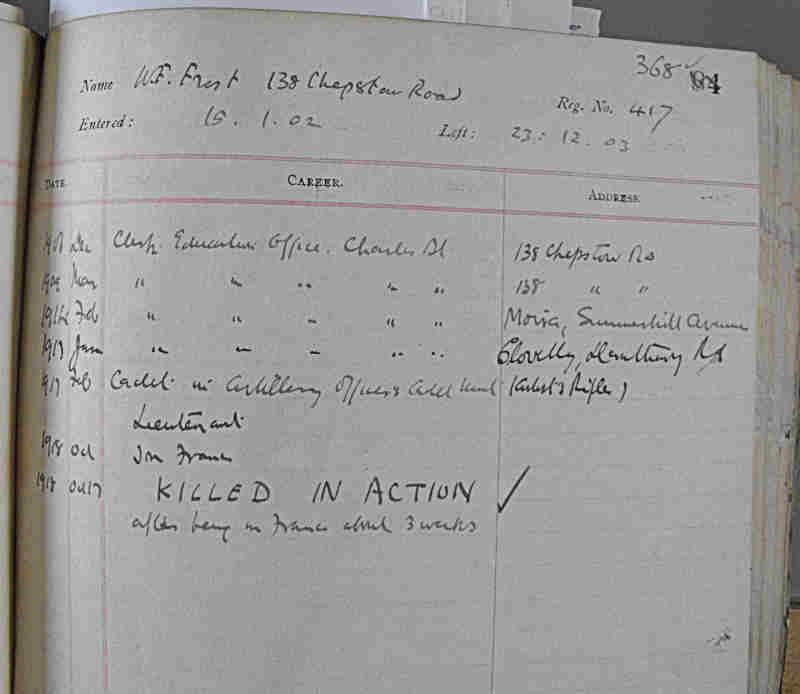 368 84
Name W.F. Frost 138 Chepstow Road
Reg. No. 417
Entered: 15. 1. 02 Left: 23. 12. 03
DATE. CAREER. ADDRESS.
1908 Dec Clerk. Education Office. Charles St 138 Chepstow Rd
1909 Mar " " " " " 138 " "
1914 Feb " " " " " Summerhill Avenue
1917 Jan " " " " " Clovelly, Rd
1917 Feb Cadet in Artillery Officers Cadet Unit (Artist's Rifles)
Lieutenant
1918 Oct In France
1918 Oct 17 KILLED IN ACTION ✓
after being in France about 3 weeks